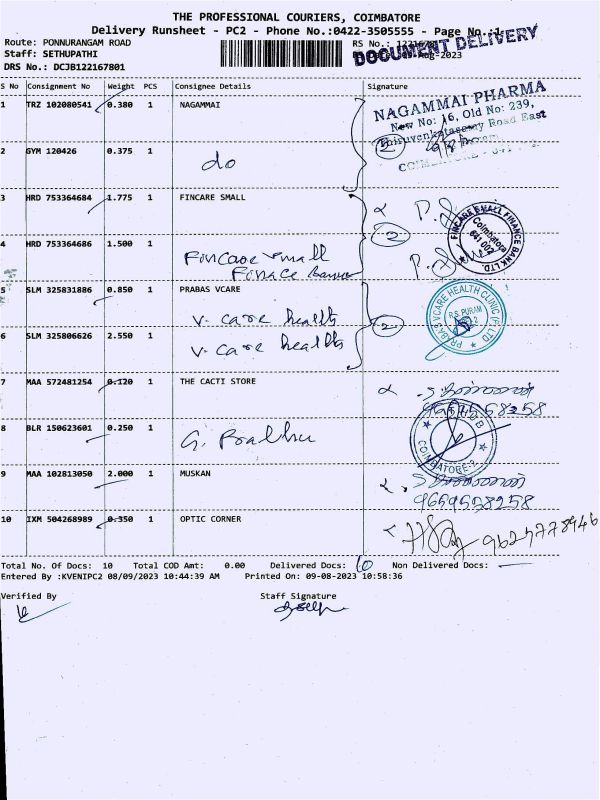 THE PROFESSIONAL COURIERS, COIMBATORE
Delivery Runsheet - PC2 - Phone No.:0422-3505555 - Page No.:1
Route: PONNURANGAM ROAD
Staff: SETHUPATHI
RS No.:
DOCUMENT DELIVERY
DRS No.: DCJB122167801
S No Consignment No Weight PCS Consignee Details Signature
1 TRZ 102080541 0.380 1 NAGAMMAI
NAGAMMAI PHARMA
New No: 16, Old No: 239,
Thiruvenkatasamy Road East
2 GYM 120426 0.375 1 do
3 HRD 753364684 1.775 1 FINCARE SMALL
FINCARE SMALL FINANCE BANK LTD
Coimbatore
641 002
4 HRD 753364686 1.500 1
Fincare Small
5 SLM 325831886 0.850 1 PRABAS VCARE
V. care health
PRABA'S VCARE HEALTH CLINIC (P) LTD
R.S. PURAM
6 SLM 325806626 2.550 1
V. care health
7 MAA 572481254 0.120 1 THE CACTI STORE
8 BLR 150623601 0.250 1
COIMBATORE-2
9 MAA 102813050 2.000 1 MUSKAN
9659578258
10 IXM 504268989 0.350 1 OPTIC CORNER
Total No. Of Docs: 10 Total COD Amt: 0.00 Delivered Docs: 10 Non Delivered Docs:
Entered By :KVENIPC2 08/09/2023 10:44:39 AM Printed On: 09-08-2023 10:58:36
Verified By Staff Signature